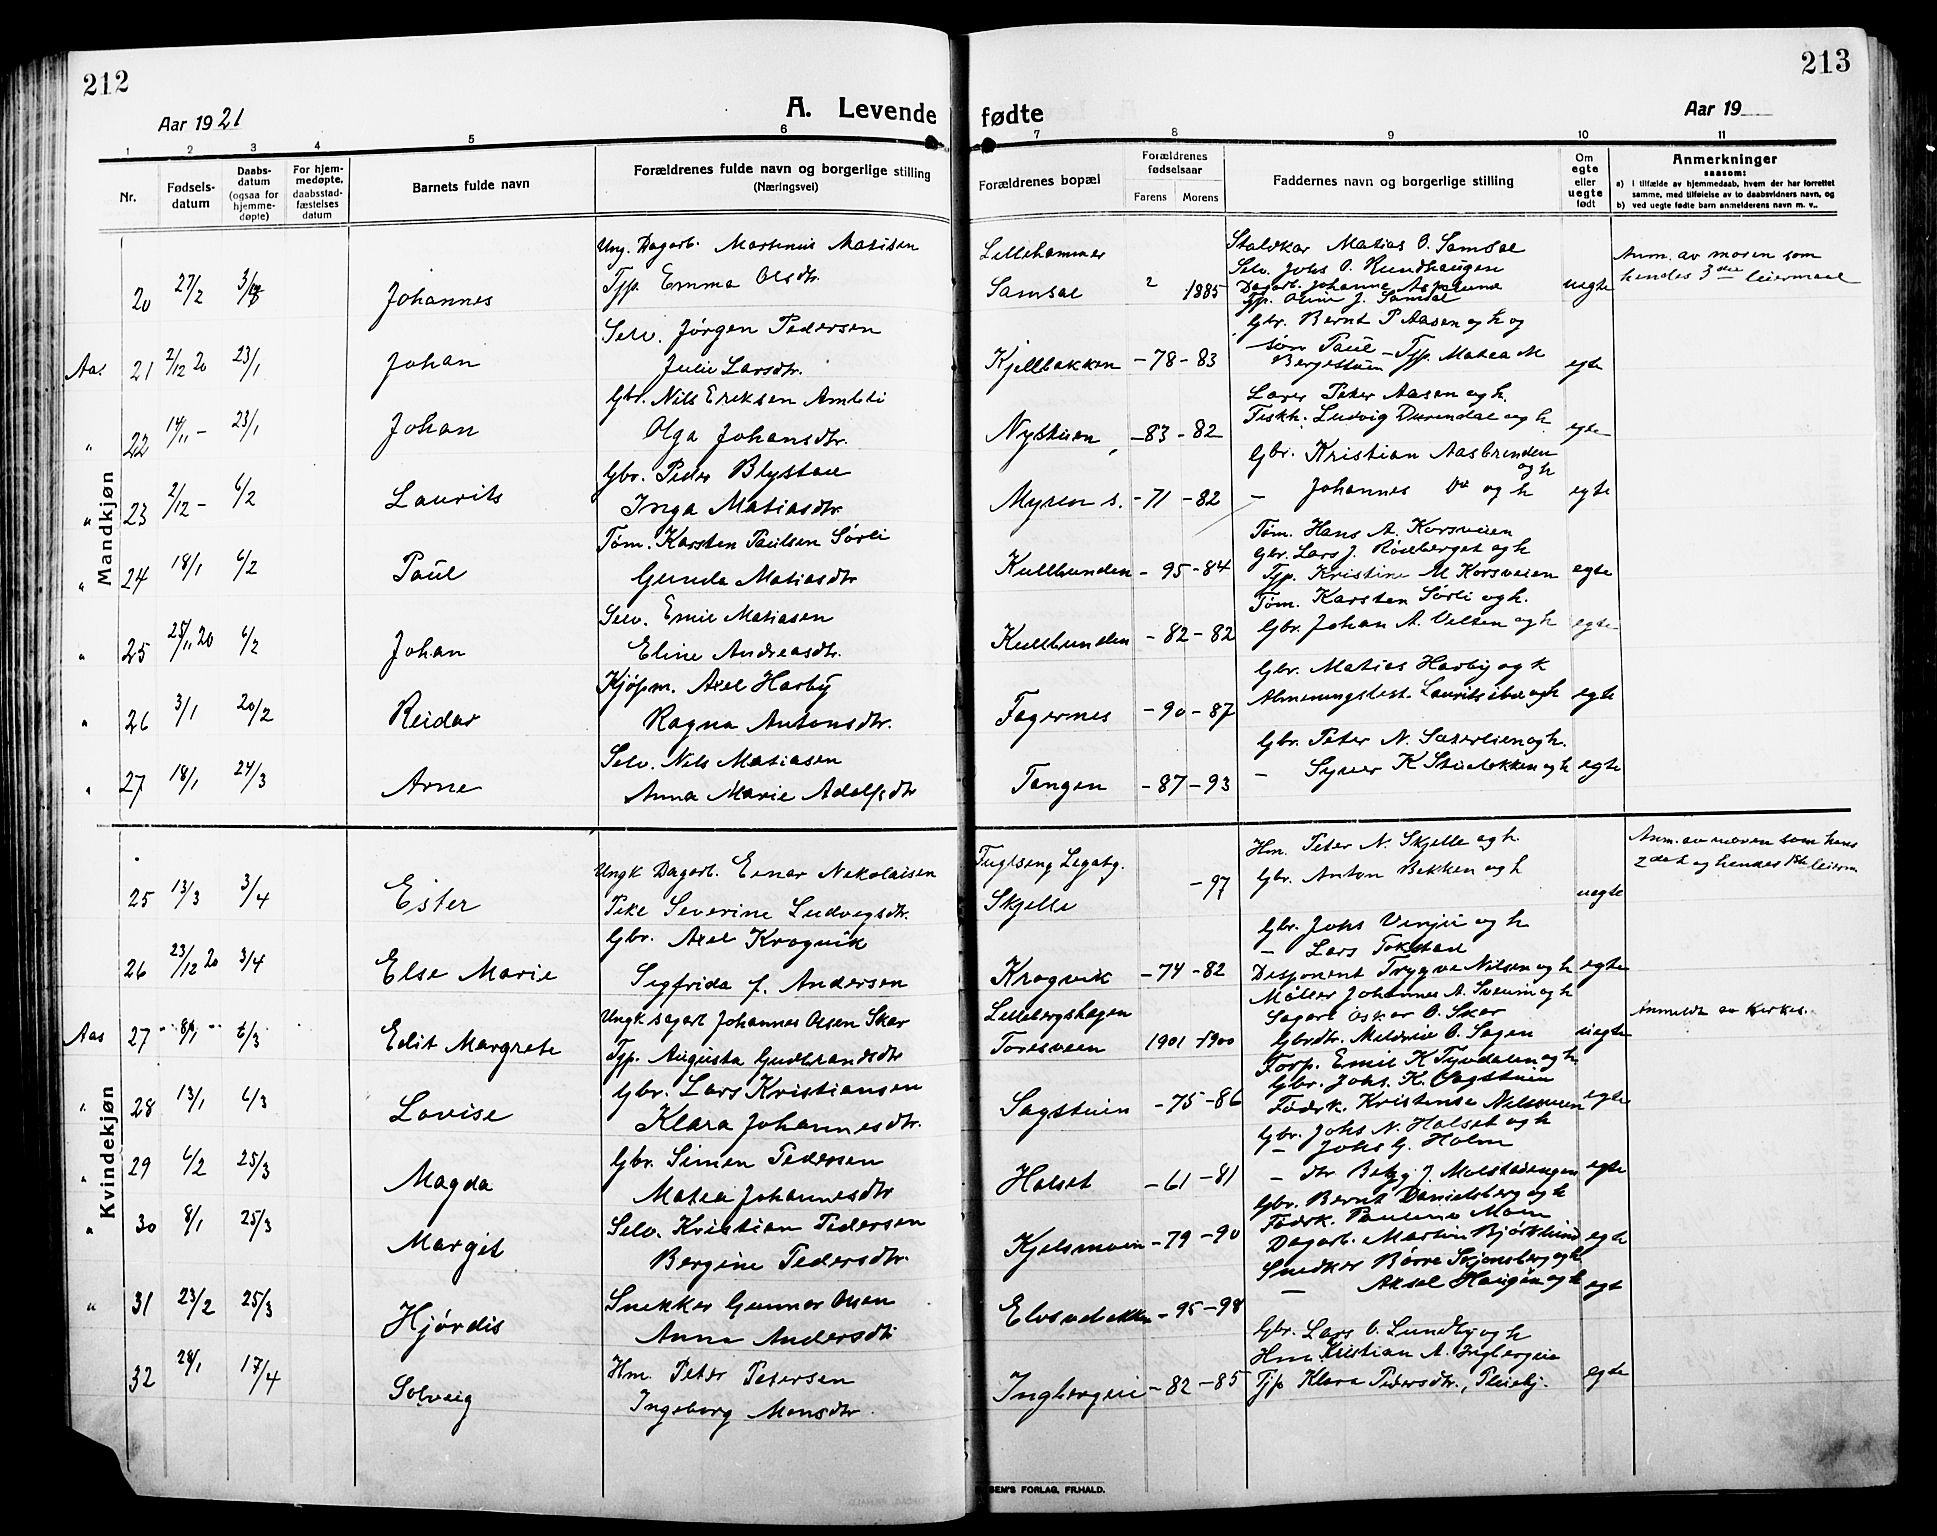 212
213
A. Levende fødte
Aar 1921
Aar 19
1 2 3 4 5 6 7 8 9 10 11
Nr.
Fødsels-datum
Daabs-datum (ogsaa for hjemme-døpte)
For hjem-medøpte, daabsstad-fæstelses datum
Barnets fulde navn
Forældrenes fulde navn og borgerlige stilling (Næringsvei)
Forældrenes bopæl
Forældrenes fødselsaar
Farens Morens
Faddernes navn og borgerlige stilling
Om egte eller uegte født
Anmerkninger
saasom:
a) i tilfælde av hjemmedaab, hvem der har forrettet samme, med tilføielse av to daabsvidners navn, og
b) ved uegte fødte barn anmelderens navn m. v..
Mandkjøn
Ung. Dagarb. Martinius Matisen Lillehammer Staldkar Matias O. Samdal Anm. av moren som
20 27/2 Johannes Tjp. Emma Olsdtr. Samdal 1885 Selv. Johs O. Rundhaugen uegte hendes 3die leiermaal
Dagarb. Johanne Asplund
Tjp. Oline J. Samdal
Selv. Jörgen Pedersen Gbr. Bernt P Aasen og h og
Aas 21 2/12 20 23/1 Johan Julie Larsdtr. Kjelbakken -78 -83 søn Paul - Tjp. Matea M Bergestuen egte
Gbr. Nils Eriksen Amlli Lærer Peter Aasen og h.
" 22 14/11 - 23/1 Johan Olga Johansdtr. Nystuen -83 -82 Fiskh. Ludvig Durendal og h egte
Gbr. Peder Blystau Gbr. Kristian Aasbrenden og h
" 23 2/12 - 6/2 Laurits Inga Matiasdtr. Myren s. -71 -82 - Johannes Do og h egte
Töm. Karsten Paulsen Sörli Töm. Hans A. Korsveien
" 24 18/1 6/2 Paul Gunda Matiasdtr Kulbunden -95 -84 Gbr. Lars J. Röseberget og h egte
Tjp. Kristine M Korsveien
Selv. Emil Matiasen Töm. Karsten Sörli og h.
" 25 25/11 20 6/2 Johan Eline Andreasdtr. Kulbunden -82 -82 Gbr. Johan A. Velten og h egte
Kjöpm. Axel Harby Gbr. Matias Harby og k
" 26 3/1 20/2 Reidar Ragna Antonsdtr. Fagernes -90 -87 Almenningsbest. og h egte
Selv. Nils Matiasen Gbr. Peter N. Sæterlien og h.
" 27 18/1 24/3 Arne Anna Marie Adolfsdtr Tangen -87 -93 - Syver K Stuelokken og h egte
Kvindekjøn
Ungk Dagarb. Einar Nikolaisen Fuglseng Legatg. Hm. Peter N. Skjelle og h. Anm. av moren som hans
25 13/3 3/4 Ester Pike Severine Ludvigsdtr. Skjelle -97 Gbr. Anton Bekken og h uegte 2det og hendes 1ste leierm
Gbr. Axel Krogvik Gbr. Johs Venjii og h
26 23/12 20 3/4 Else Marie Sigfrida f. Andersen Krogvik -74 -82 - Lars Tokstad egte
Disponent Trygve Nilsen og h
Ungk Sagarb Johannes Olsen Skar Lillebergshagen Möller Johannes A. Sveum og h Anmeldt av kirkes.
Aas 27 8/1 6/3 Edit Margrete Tjp. Augusta Gudbrandsdtr Toresveen 1901 -1900 Sagarb Oskar O. Skar uegte
Gbrdtr. Meldine O. Sagen
Gbr. Lars Kristiansen Forp. Emil K Tyvdalen og h.
" 28 13/1 6/3 Lovise Klara Johannesdtr. Sagstuen -75 -86 Gbr. Johs. K. Sagstuen egte
Födrk. Kristense Nilsveen
Gbr. Simen Pedersen Gbr. Johs N. Halset og h
" 29 6/2 25/3 Magda Matea Johannesdtr Halset -61 -81 - Johs G. Holm egte
- dtr Betzy J. Molstadengen
Selv. Kristian Pedersen Gbr. Bernt Danielsberg og h
" 30 8/1 25/3 Margit Bergine Pedersdtr. Kjelsmoen -79 -90 Födrk. Pauline Moen egte
Dagarb. Martin Björklund
Snekker Gunnar Olsen Snedker Børre Skjonsberg og h
" 31 23/2 25/3 Hjördis Anna Andersdtr Elvsvebakken -95 -98 - Aksel Haugen og h egt
Hm. Peter Petersen Gbr. Lars O. Lundby og h
32 29/1 17/4 Solveig Ingeborg Monsdtr. Ingbergeie -82 -85 Hm. Kristian A. Ingbergeie egte
Tjp Klara Pedersdtr.,
SEM'S FORLAG, FR.HALD.